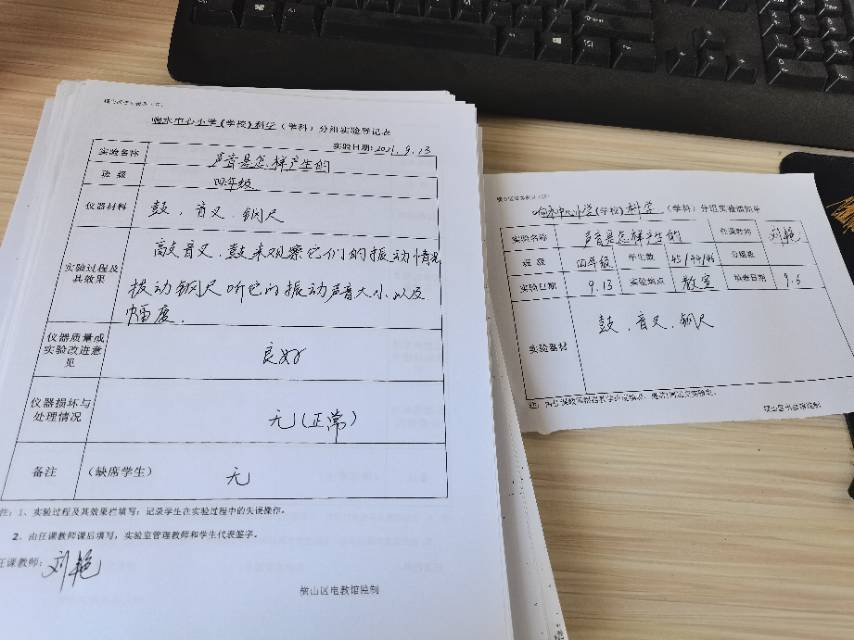 响水中心小学(学校)科学(学科)分组实验登记表
实验日期:2021.9.13
实验名称 声音是怎样产生的
班 级 四年级
仪器材料 鼓、音叉、钢尺
实验过程及其效果
敲音叉、鼓来观察它们的振动情况
拨动钢尺听它的振动声音大小以及
幅度.
仪器质量或实验改进意见 良好
仪器损坏与处理情况 无(正常)
备注 (缺席学生) 无
注:1、实验过程及其效果栏填写:记录学生在实验过程中的失误操作。
2、由任课教师课后填写,实验室管理教师和学生代表签字。
任课教师:刘艳
横山区电教馆监制
响水中心小学(学校)科学(学科)分组实验通知单
实验名称 声音是怎样产生的 任课教师 刘艳
班 级 四年级 学生数 45/44/46 分组数
实验日期 9.13 实验地点 教室 填给日期 9.6
实验器材 鼓、音叉、钢尺